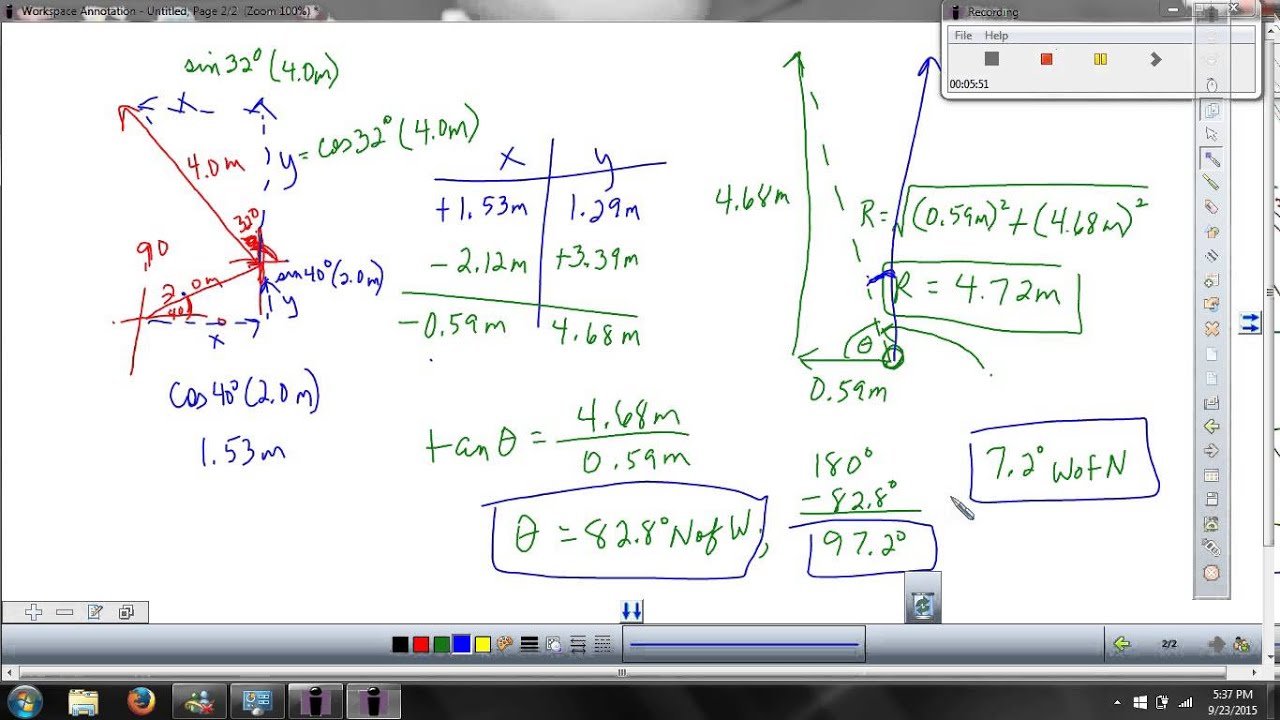 Workspace Annotation - Untitled, Page 2/2 (Zoom 100%) *
Recording
File Help
00:05:51
sin32°(4.0m)
x
y = cos32°(4.0m)
4.0m
32°
90
2.0m
40°
sin40°(2.0m)
y
x
cos40°(2.0m)
1.53m
x y
+1.53m 1.29m
-2.12m +3.39m
-0.59m 4.68m
tanθ = 4.68m
0.59m
θ = 82.8° N of W;
4.68m
R = √(0.59m)² + (4.68m)²
R = 4.72m
θ
0.59m
180°
-82.8°
97.2°
7.2° W of N
2/2
5:37 PM
9/23/2015